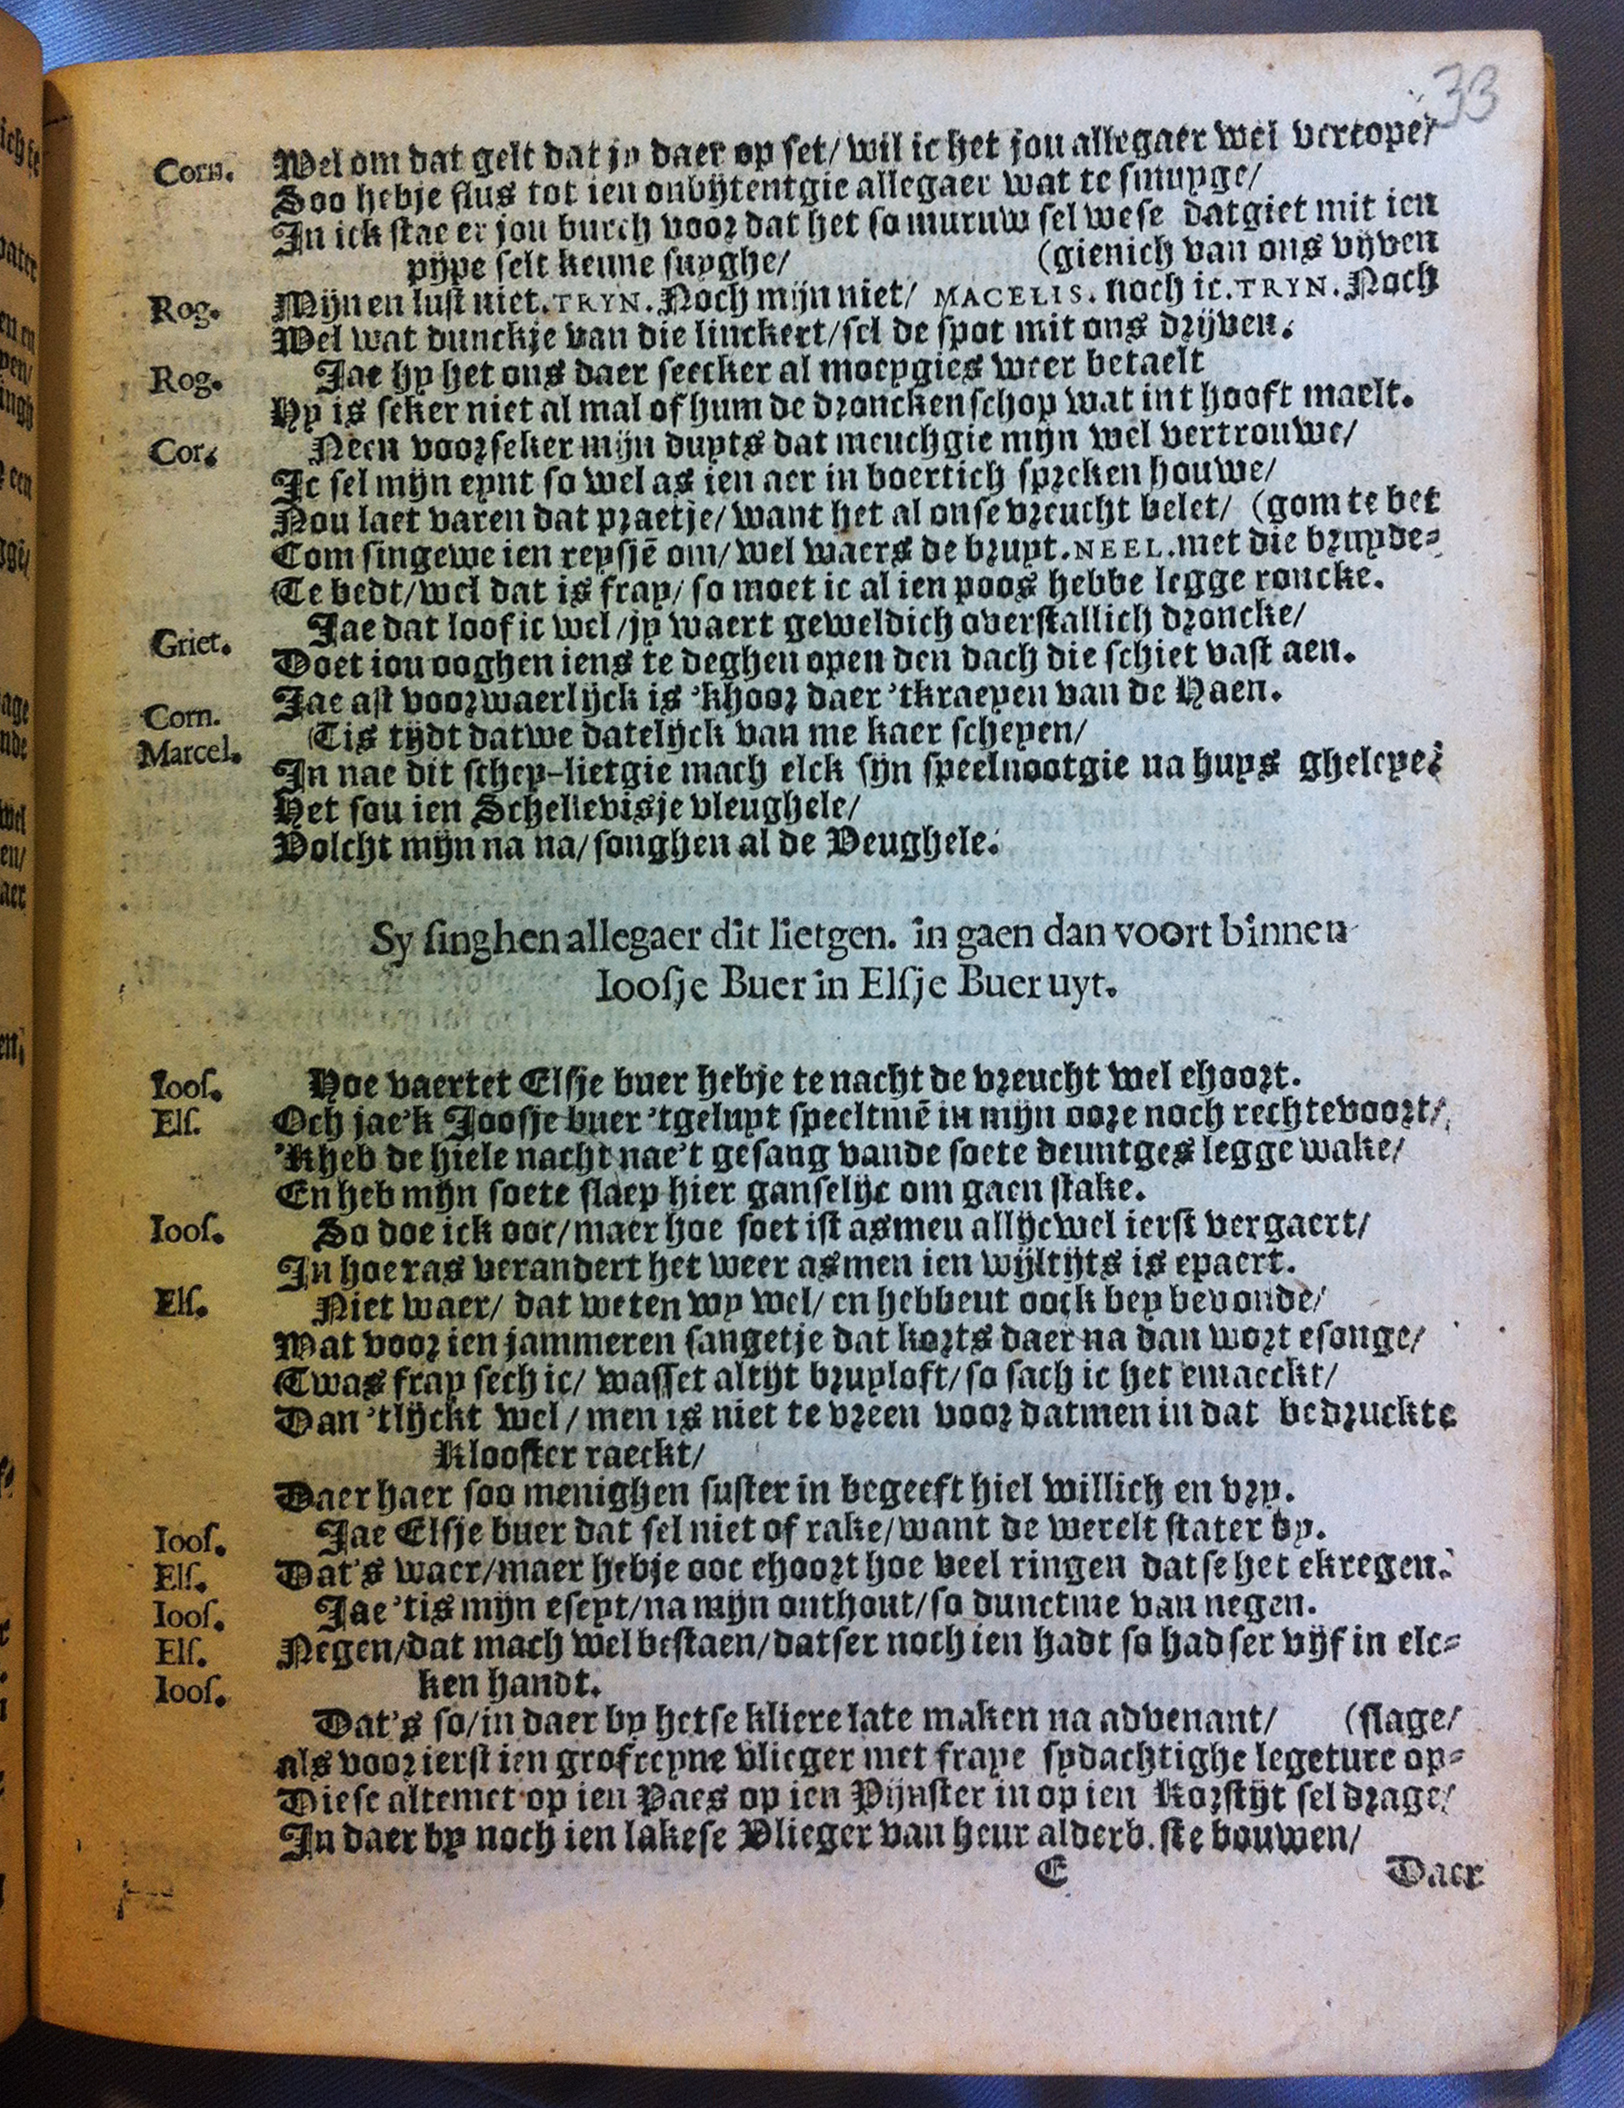 33
Corn. Wel om dat gelt dat jy daer op set/ wil ic het jou allegaer wel vertope/
Soo hebje flus tot ien onbijtentgie allegaer wat te smuyge/
In ick stae er jou burch voor dat het so muruw sel wese datgiet mit ien
pijpe selt kenne suyghe/ (gienich van ons vijven
Rog. Mijn en lust niet. TRYN. Noch mijn niet/ MACELIS. noch ic. TRYN. Noch
Wel wat dunckje van die linckert/ sel de spot mit ons drijven.
Rog. Jae hy het ons daer seecker al moeygies weer betaelt
Hy is seker niet al mal of hum de dronckenschop wat int hooft maelt.
Cor. Neen voorseker mijn duyts dat meuchgie mijn wel vertrouwe/
Ic sel mijn eynt so wel as ien aer in boertich spreken houwe/
Nou laet varen dat praetje/ want het al onse vreucht belet/ (gom te bet
Com singewe ien reysjē om/ wel waers de bruyt. NEEL. met die bruyde-
Te bedt/ wel dat is fray/ so moet ic al ien poos hebbe legge roncke.
Griet. Jae dat loof ic wel/ jy waert geweldich overstallich droncke/
Doet iou ooghen iens te deghen open den dach die schiet vast aen.
Corn. Jae ast voorwaerlijck is 'khoor daer 'tkraeyen van de Haen.
Marcel. Tis tijdt datwe datelijck van me kaer scheyen/
In nae dit schey-lietgie mach elck sijn speelnootgie na huys gheleye:
Het sou ien Schellevisje vleughele/
Volcht mijn na na/ songhen al de Veughele.
Sy singhen allegaer dit lietgen. in gaen dan voort binnen
Ioosje Buer in Elsje Buer uyt.
Ioos. Hoe vaertet Elsje buer hebje te nacht de vreucht wel ehoort.
Els. Och jae'k Joosje buer 'tgeluyt speeltmē in mijn oore noch rechtevoort/
'Kheb de hiele nacht nae't gesang vande soete deuntges legge wake/
En heb mijn soete slaep hier ganselijc om gaen stake.
Ioos. So doe ick ooc/ maer hoe soet ist asmen allijcwel ierst vergaert/
In hoe ras verandert het weer asmen ien wijltijts is epaert.
Els. Niet waer/ dat weten wy wel/ en hebbent oock bey bevonde/
Wat voor ien jammeren sangetje dat korts daer na dan wort esonge/
Twas fray sech ic/ wasset altijt bruyloft/ so sach ic het emaeckt/
Dan 'tlijckt wel/ men is niet te vreen voor datmen in dat bedruckte
Klooster raeckt/
Daer haer soo menighen suster in begeeft hiel willich en vry.
Ioos. Jae Elsje buer dat sel niet of rake/ want de werelt stater by.
Els. Dat's waer/ maer hebje ooc ehoort hoe veel ringen datse het ekregen.
Ioos. Jae 'tis mijn eseyt/ na mijn onthout/ so dunctme van negen.
Els. Negen/ dat mach wel bestaen/ datser noch ien hadt so hadser vijf in elc-
Ioos. ken handt.
Dat's so/ in daer by hetse kliere late maken na advenant/ (slage/
als voor ierst ien grofreyne vlieger met fraye sydachtighe legeture op-
Diese altemet op ien Paes op ien Pijnster in op ien Korstijt sel drage/
In daer by noch ien lakese Vlieger van heur alderb.ste bouwen/
E Daer